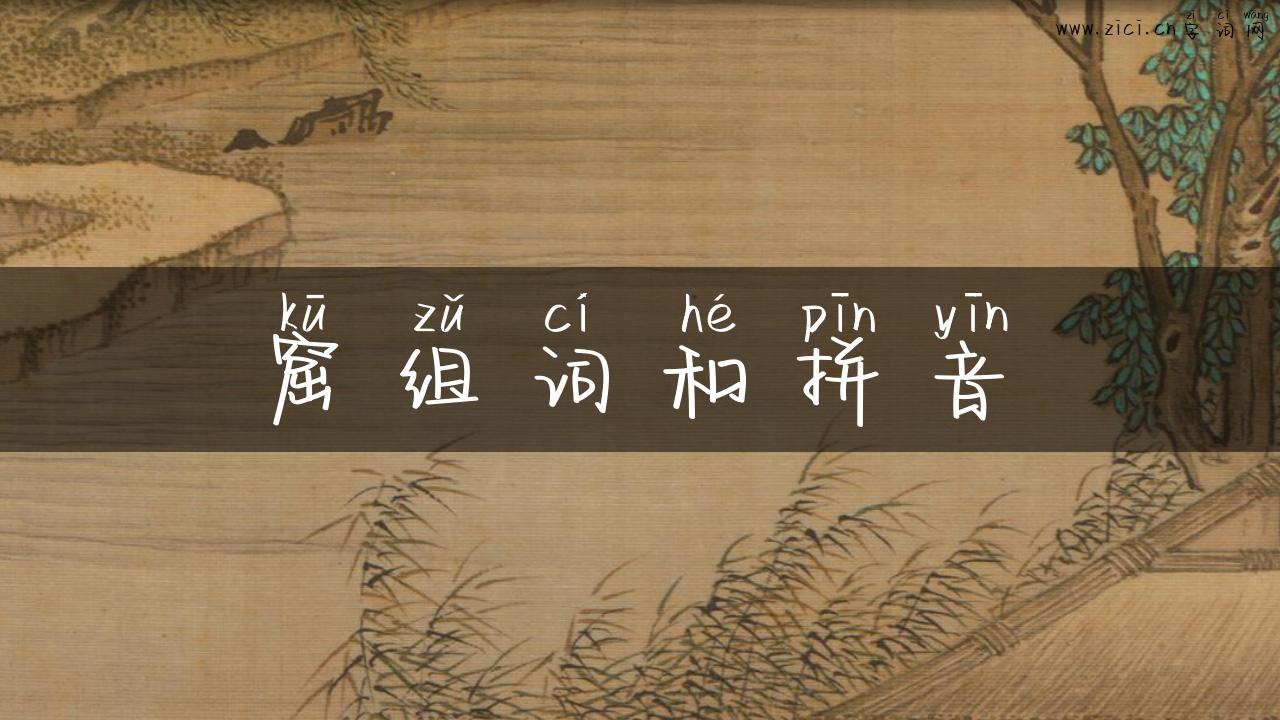 zì cí wǎng
www.zici.cn字词网
kū zǔ cí hé pīn yīn
窟组词和拼音